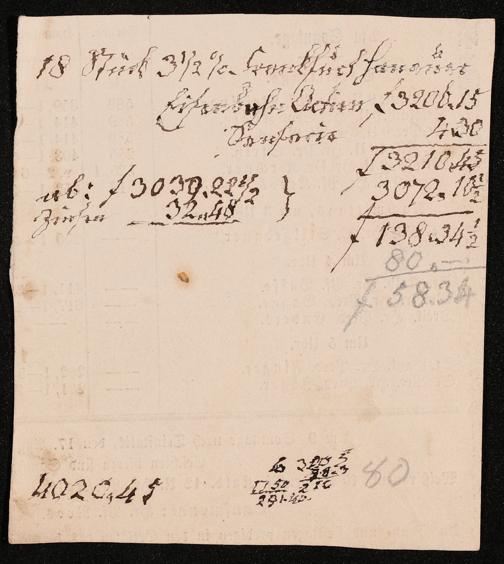 18 Stück 3½% Frankfurt Hanauer
Eisenbahn Actien, f 3206.15
Sensarie 4.30
f 3210.45
ab: f 3039.22½ } 3072.10½
Zinsen 32.48
f 138.34½
80.—
f 58.34
80
4020.45